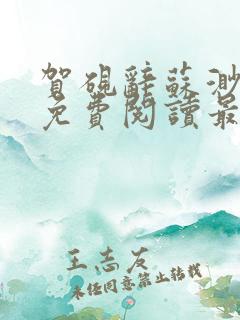 賀硯辭蘇渺
免費閱讀最
王志友
未经同意禁止转载